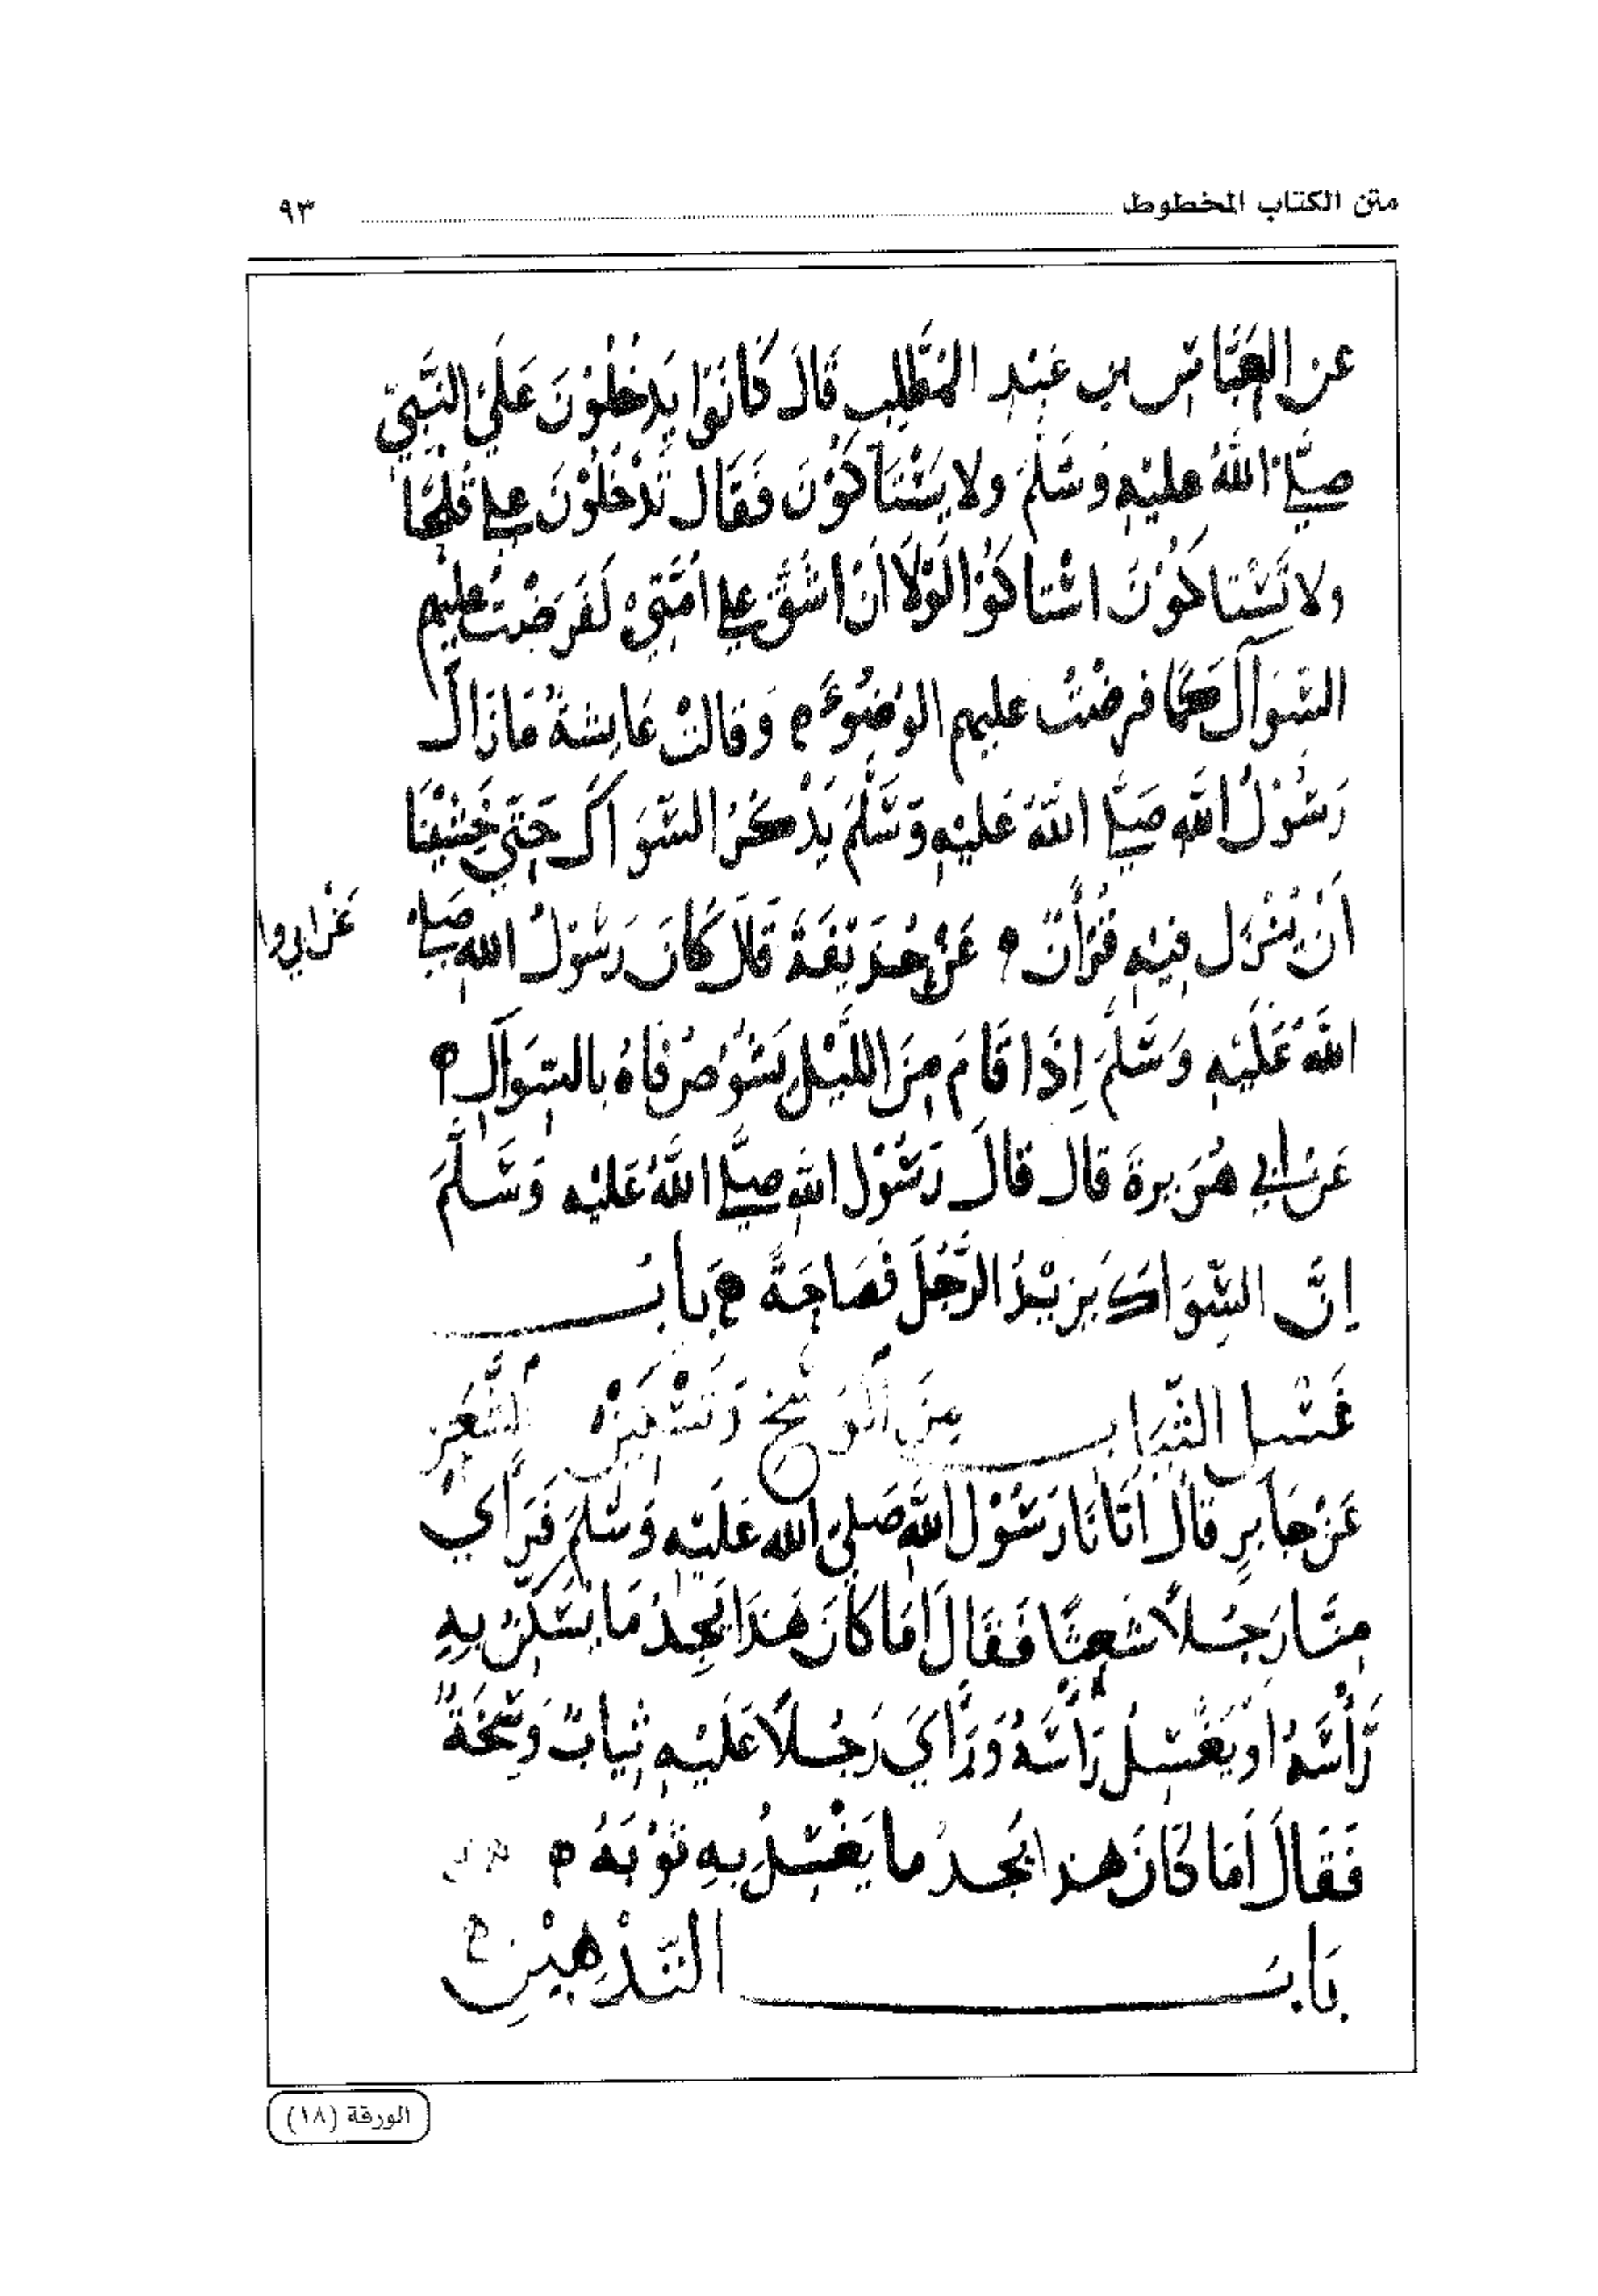 متن الكتاب المخطوط ٩٣
عن العَبَّاسِ بنِ عَبْدِ المُطَّلِبِ قَالَ كَانُوا يَدخُلوُنَ عَلَى النَّبِيِّ
صَلَّى اللَّهُ عليْهِ وَسَلَّمَ ولا يَسْتَاكُوْنَ فَقَال تَدْخُلُوْنَ علي قُلْحًا
ولا تَسْتَاكُوْنَ اسْتاكُوْا لَوْلَا أَنْ اشُقَّ علي امَّتِيْ لَفَرَضْتُ عليهِم
السِّوَاكَ كمَا فرضْتُ عليهم الوُضُوْءَ ه وَقالتْ عَايشةُ مَا زَالَ
رَسُوْلُ اللَّهِ صَلَّى اللَّهُ عَليْهِ وَسَلَّمَ يَذْكُرُ السِّوَاكَ حَتَّي خَشِيْنَا
أَنْ يُنْزَل فِيْهِ قُرْأنٌ ه عَنْ حُذَيْفَةَ قَالَ كَانَ رَسُوْلُ اللهِ صَلي
عَنْ ابي وا
اللَّهُ عَلَيْهِ وَسَلَّمَ إِذَا قَامَ مِنَ اللَّيْلِ يَشُوْصُ فاهُ بالسِّوَاكِ ه
عَنْ ابي هُرَيرةَ قال قالَ رَسُوْل اللهِ صلَّى اللَّهُ عَليْهِ وَسَلَّمَ
إِنَّ السِّوَاكَ يَزيْدُ الرَّجُلَ فَصَاحَةً ه بابُ
غَسْلِ الثِّيَابِ مِنَ الوَسَخِ وَتَسْكِيْنِ الشَّعَرِ
عَنْ جَابِرٍ قالَ أتَانَا رَسُوْل اللَّهِ صَلي الله عَلَيْهِ وَسَلَّمَ فَرَأَي
مِنَّا رَجُلًا شَعِثًا فَقَالَ أمَا كَانَ هَذَا يَجِدُ مَا يُسَكِّنُ بِهِ
رَأْسَهُ أوْ يَغْسِلُ رَأْسَهُ وَرَأَي رَجُلًا عَلَيْهِ ثِيابٌ وَسِخَةٌ
فَقَالَ أمَا كَانَ هذا يَجدُ ما يَغْسِلُ بِهِ ثَوْبَهُ ه
بَابُ التَّدْهِيْنِ ه
الورقة (١٨)